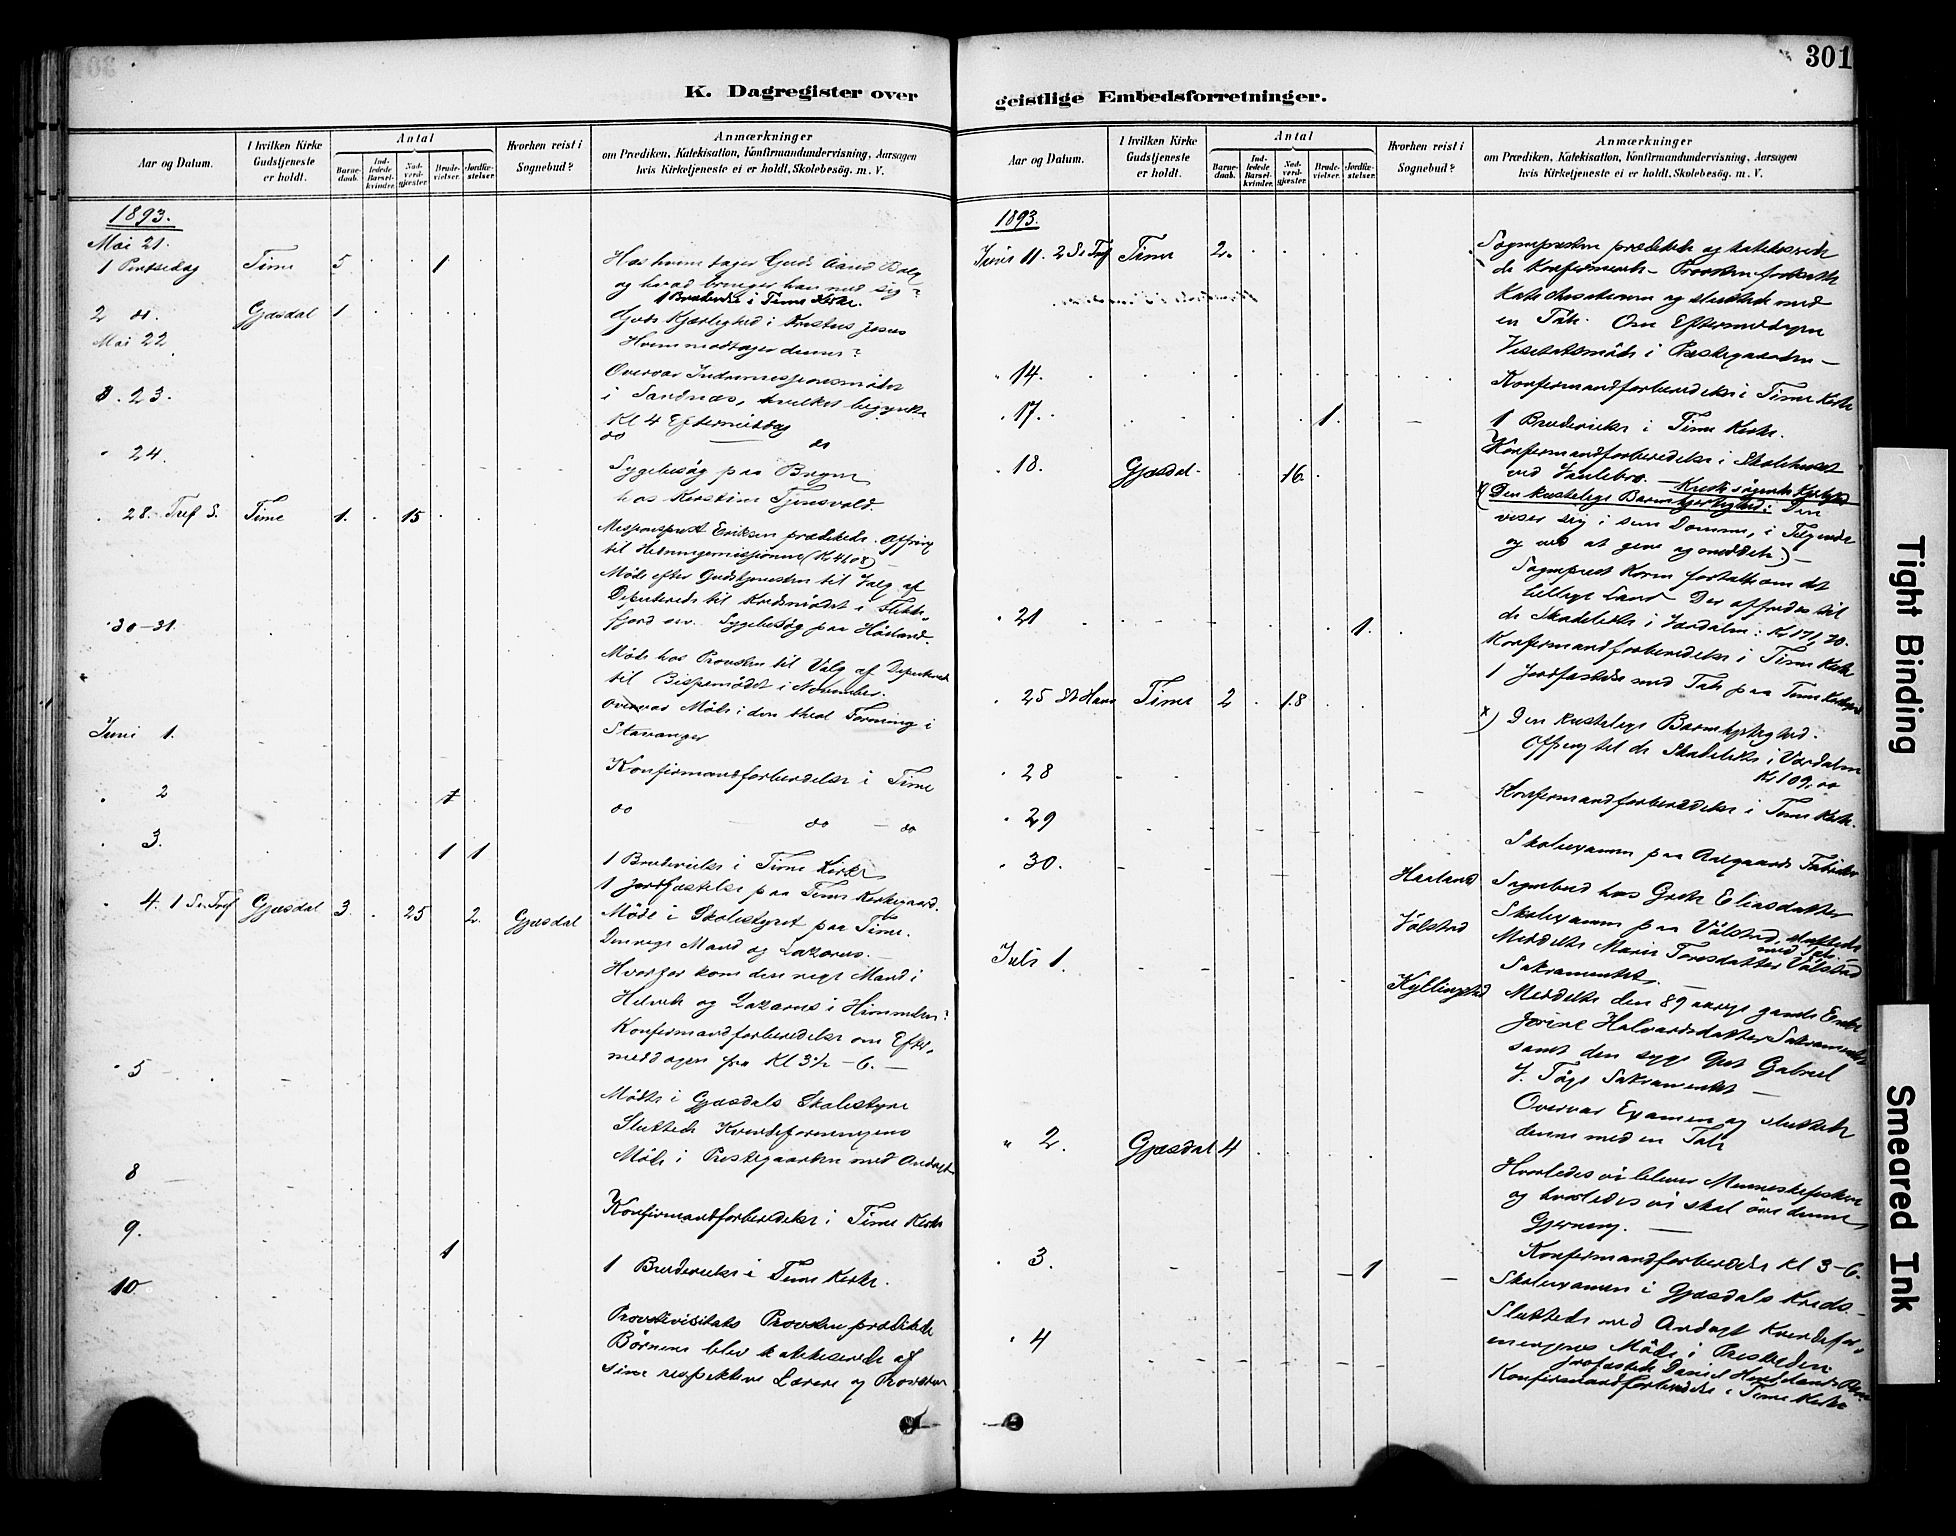 301
K. Dagregister over
geistlige Embedsforretninger.
Aar og Datum.
I hvilken Kirke Gudstjeneste er holdt.
Antal
Barnedaab.
Indledede Barselkvinder.
Nadverdgjester.
Brudevielser.
Jordfæstelser.
Hvorhen reist i Sognebud?
Anmærkninger
om Prædiken, Katekisation, Konfirmandundervisning, Aarsagen
hvis Kirketjeneste ei er holdt, Skolebesøg. m. V.
1893.
Mai 21.
1 Pintsedag Time 5 1 Hos hvem tager Guds Aand Bolig
og hvad bringer han med sig?
1 Brudevielse i Time Kirke.
2 do. Gjæsdal 1 Guds Kjærlighed i Kristus Jesus
Mai 22 Hvem modtager denne?
Overvar Indremissionsmødet
23. i Sandnæs, hvilket begyndte
Kl 4 Eftermiddag
do do
24. Sygebesøg paa Bryne
hos Kirstine Tjensvold.
28. Tref S. Time 1. 15 Missionsprest Eriksen prædikede. Offring
til Hedningemissionen (Kr 41,08)
Møde efter Gudstjenesten til Valg af
Deputerede til Kredsmødet i Flekke-
fjord Sygebesøg paa Høiland
30-31
Møde hos Provsten til Valg af Deputerede
til Bispemødet i November.
Overvar Møde i den theol Forening i
Juni 1. Stavanger
Konfirmandforberedelse i Time
2 1
do do do
3. 1 1 1 Brudevielse i Time Kirke
1 Jordfæstelse paa Time Kirkegaard.
4. 1 S. e. Tref Gjæsdal 3. 25 2. Gjæsdal Møde i Skolestyret paa Time.
Den rige Mand og Lazarus.
Hvorfor kom den rige Mand i
Helvede og Lazarus i Himmelen?
Konfirmandforberedelse om Efter-
middagen fra Kl 3½ - 6.
5
Mødte i Gjæsdals Skolestyre
Sluttede Kvindeforeningens
Møde i Prestegaarden med Andagt
8
Konfirmandforberedelse i Time Kirke
9. 1
1 Brudevielse i Time Kirke.
10.
Provstevisitats Provsten prædikede
Børnene blev katekiserede af
sine respektive Lærere og Provsten
Aar og Datum.
I hvilken Kirke Gudstjeneste er holdt.
Antal
Barnedaab.
Indledede Barselkvinder.
Nadverdgjester.
Brudevielser.
Jordfæstelser.
Hvorhen reist i Sognebud?
Anmærkninger
om Prædiken, Katekisation, Konfirmandundervisning, Aarsagen
hvis Kirketjeneste ei er holdt, Skolebesøg. m. V.
1893.
Juni 11. 2 S. e. Tref Time 2. Sognepresten prædikede og katekiserede
de Konfirmerede - Provsten fortsatte
Katekisationen og sluttede med
en Tale. Om Eftermiddagen
Visitatsmøde i Prestegaarden -
14. Konfirmandforberedelse i Time Kirke
17. 1. 1 Brudevielse i Time Kirke.
Konfirmandforberedelse i Skolehuset
18. Gjæsdal. 16. ved
x) Den kristelige Barmhjertighed: Den
viser sig i sin Dommen, i Tilgivelse
og ved at give og meddele.) -
Sogneprest fortalte om det
hellige Land Der offredes til
21 1. de Skadelidte i Værdalen: Kr 171,70.
Konfirmandforberedelse i Time Kirke
1 Jordfæstelse med Tale paa Time Kirkegaard
25 St Hans Time 2 18
x) Den kristelige Barmhjertighed.
Offring til de Skadelidte i Værdalen
28 Kr 109,00
Konfirmandforberedelse i Time Kirke.
29
Skolexamen paa Aalgaards Fabrikker
30. Haaland Sognebud hos Grete Eliasdatter
Vølstad Skolexamen paa Vølstad, sluttede
med Tale.
Juli 1. Meddelte Maren Tønesdatter Vølstad
Sakramentet.
Kyllingstad Meddelte den 89 aarige gamle Enke
Jorine Halvardsdatter Sakramentet
samt den syge Gut Gabriel
J. Sakramentet -
Overvar Examen og sluttede
2. Gjæsdal 4 denne med en Tale
Hvorledes vi bliver Menneskefiskere
og hvorledes vi skal øve denne
Gjerning. -
3. 1 Konfirmandforberedelse Kl 3-6.
Skolexamen i Gjæsdals Kreds. -
Sluttede med Andagt Kvindefor-
4 eningens Møde i Prestegaarden.
Konfirmandforberedelse i Time Kirke
Tight Binding
Smeared Ink